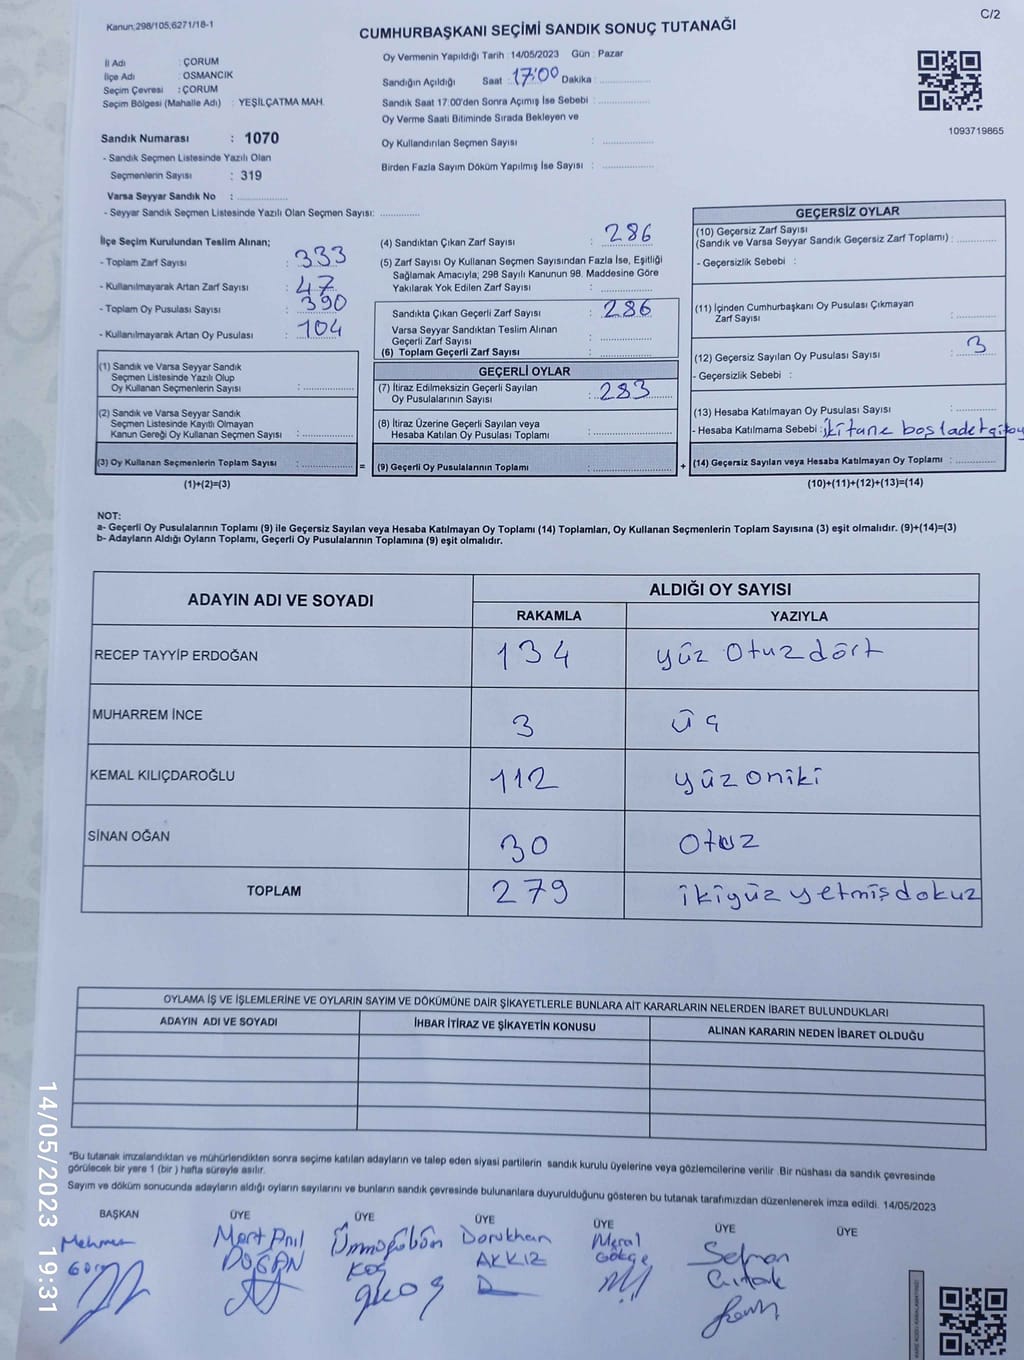 Kanun:298/105,6271/18-1
C/2
CUMHURBAŞKANI SEÇİMİ SANDIK SONUÇ TUTANAĞI
İl Adı : ÇORUM
İlçe Adı : OSMANCIK
Seçim Çevresi : ÇORUM
Seçim Bölgesi (Mahalle Adı) : YEŞİLÇATMA MAH.
Oy Vermenin Yapıldığı Tarih : 14/05/2023 Gün : Pazar
Sandığın Açıldığı Saat : 17:00 Dakika :
Sandık Saat 17:00'den Sonra Açımış İse Sebebi :
Oy Verme Saati Bitiminde Sırada Bekleyen ve
Oy Kullandırılan Seçmen Sayısı :
Birden Fazla Sayım Döküm Yapılmış İse Sayısı :
1093719865
Sandık Numarası : 1070
- Sandık Seçmen Listesinde Yazılı Olan
Seçmenlerin Sayısı : 319
Varsa Seyyar Sandık No :
- Seyyar Sandık Seçmen Listesinde Yazılı Olan Seçmen Sayısı:
İlçe Seçim Kurulundan Teslim Alınan;
- Toplam Zarf Sayısı : 333
- Kullanılmayarak Artan Zarf Sayısı : 47
- Toplam Oy Pusulası Sayısı : 390
- Kullanılmayarak Artan Oy Pusulası : 104
(1) Sandık ve Varsa Seyyar Sandık
Seçmen Listesinde Yazılı Olup
Oy Kullanan Seçmenlerin Sayısı :
(2) Sandık ve Varsa Seyyar Sandık
Seçmen Listesinde Kayıtlı Olmayan
Kanun Gereği Oy Kullanan Seçmen Sayısı :
(3) Oy Kullanan Seçmenlerin Toplam Sayısı :
(1)+(2)=(3)
(4) Sandıktan Çıkan Zarf Sayısı : 286
(5) Zarf Sayısı Oy Kullanan Seçmen Sayısından Fazla İse, Eşitliği
Sağlamak Amacıyla; 298 Sayılı Kanunun 98. Maddesine Göre
Yakılarak Yok Edilen Zarf Sayısı :
Sandıkta Çıkan Geçerli Zarf Sayısı : 286
Varsa Seyyar Sandıktan Teslim Alınan
Geçerli Zarf Sayısı :
(6) Toplam Geçerli Zarf Sayısı :
GEÇERLİ OYLAR
(7) İtiraz Edilmeksizin Geçerli Sayılan
Oy Pusulalarının Sayısı : 283
(8) İtiraz Üzerine Geçerli Sayılan veya
Hesaba Katılan Oy Pusulası Toplamı :
= (9) Geçerli Oy Pusulalarının Toplamı :
GEÇERSİZ OYLAR
(10) Geçersiz Zarf Sayısı
(Sandık ve Varsa Seyyar Sandık Geçersiz Zarf Toplamı) :
- Geçersizlik Sebebi :
(11) İçinden Cumhurbaşkanı Oy Pusulası Çıkmayan
Zarf Sayısı :
(12) Geçersiz Sayılan Oy Pusulası Sayısı : 3
- Geçersizlik Sebebi :
(13) Hesaba Katılmayan Oy Pusulası Sayısı :
- Hesaba Katılmama Sebebi : iki tane boş
+ (14) Geçersiz Sayılan veya Hesaba Katılmayan Oy Toplamı :
(10)+(11)+(12)+(13)=(14)
NOT:
a- Geçerli Oy Pusulalarının Toplamı (9) ile Geçersiz Sayılan veya Hesaba Katılmayan Oy Toplamı (14) Toplamları, Oy Kullanan Seçmenlerin Toplam Sayısına (3) eşit olmalıdır. (9)+(14)=(3)
b- Adayların Aldığı Oyların Toplamı, Geçerli Oy Pusulalarının Toplamına (9) eşit olmalıdır.
ADAYIN ADI VE SOYADI
ALDIĞI OY SAYISI
RAKAMLA YAZIYLA
RECEP TAYYİP ERDOĞAN 134 yüz otuz dört
MUHARREM İNCE 3 üç
KEMAL KILIÇDAROĞLU 112 yüz oniki
SİNAN OĞAN 30 otuz
TOPLAM 279 ikiyüz yetmiş dokuz
OYLAMA İŞ VE İŞLEMLERİNE VE OYLARIN SAYIM VE DÖKÜMÜNE DAİR ŞİKAYETLERLE BUNLARA AİT KARARLARIN NELERDEN İBARET BULUNDUKLARI
ADAYIN ADI VE SOYADI İHBAR İTİRAZ VE ŞİKAYETİN KONUSU ALINAN KARARIN NEDEN İBARET OLDUĞU
*Bu tutanak imzalandıktan ve mühürlendikten sonra seçime katılan adayların ve talep eden siyasi partilerin sandık kurulu üyelerine veya gözlemcilerine verilir. Bir nüshası da sandık çevresinde
görülecek bir yere 1 (bir) hafta süreyle asılır.
Sayım ve döküm sonucunda adayların aldığı oyların sayılarını ve bunların sandık çevresinde bulunanlara duyurulduğunu gösteren bu tutanak tarafımızdan düzenlenerek imza edildi. 14/05/2023
BAŞKAN ÜYE ÜYE ÜYE ÜYE ÜYE ÜYE
Mehmet Mert Anıl Ümmügülsün Dorukhan Meral Selman
DOĞAN KOÇ AKKIZ Gökçe
14/05/2023 19:31